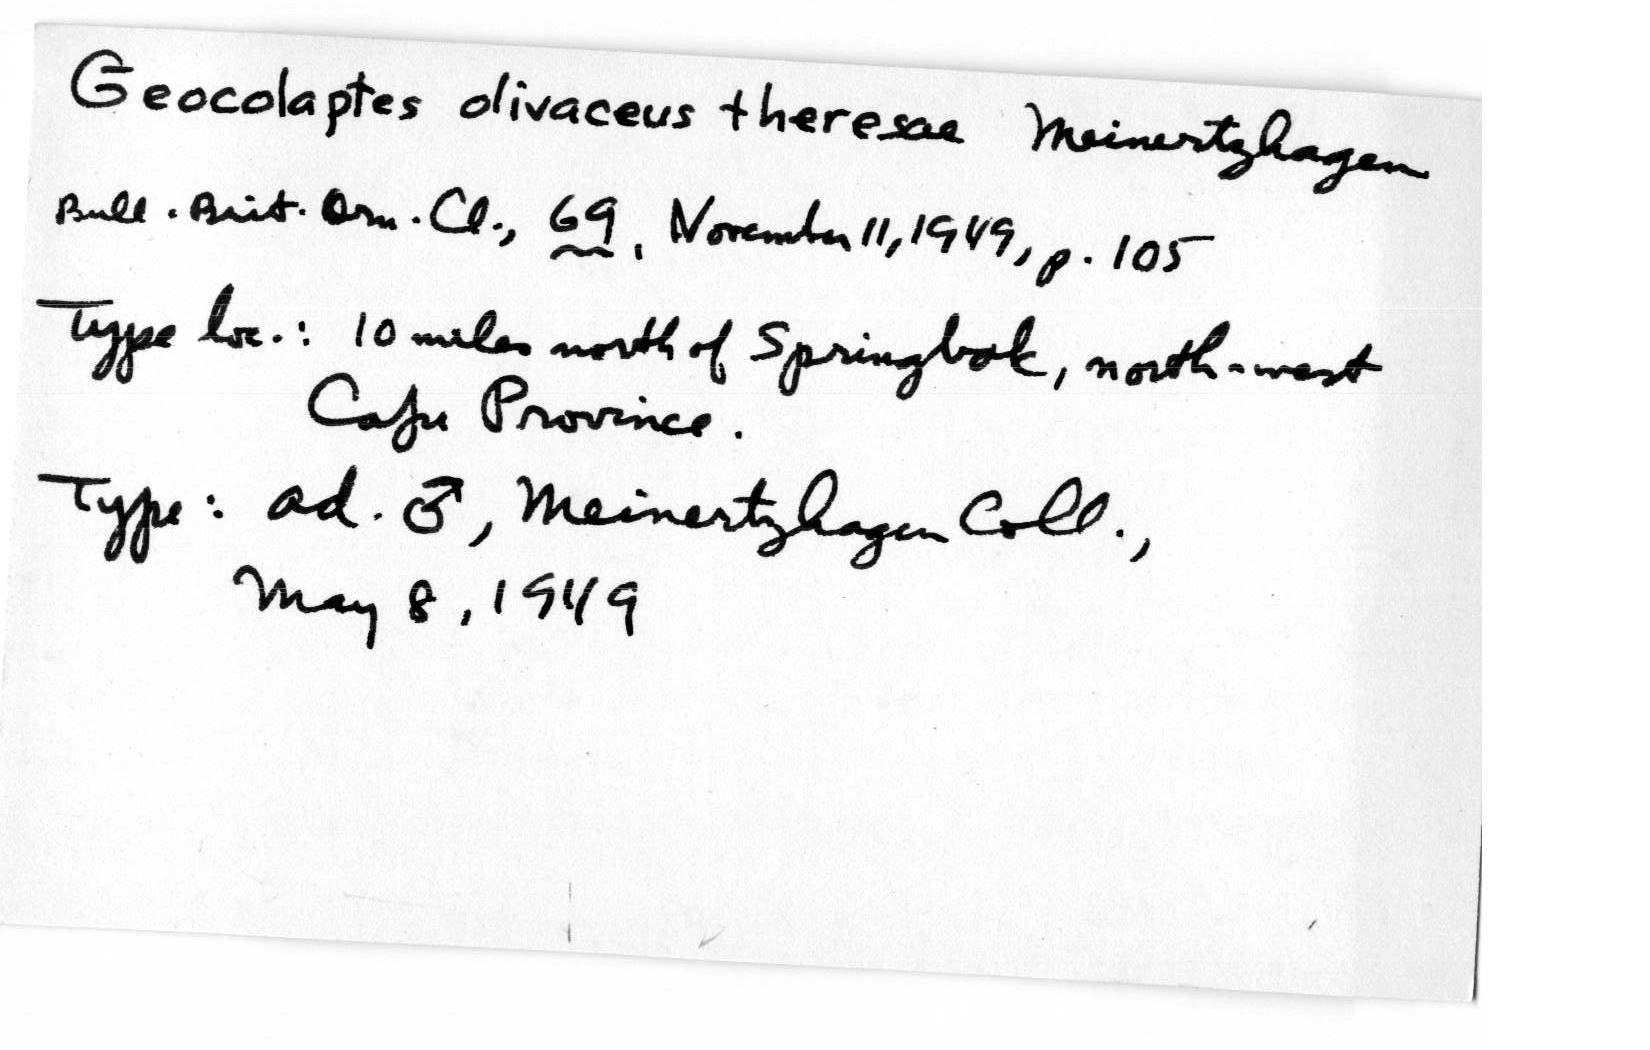 Geocolaptes olivaceus theresae Meinertzhagen
Bull. Brit. Orn. Cl., 69, November 11, 1949, p. 105
Type loc.: 10 miles north of Springbok, north-west
Cape Province.
Type: ad. ♂, Meinertzhagen Coll.,
May 8, 1949